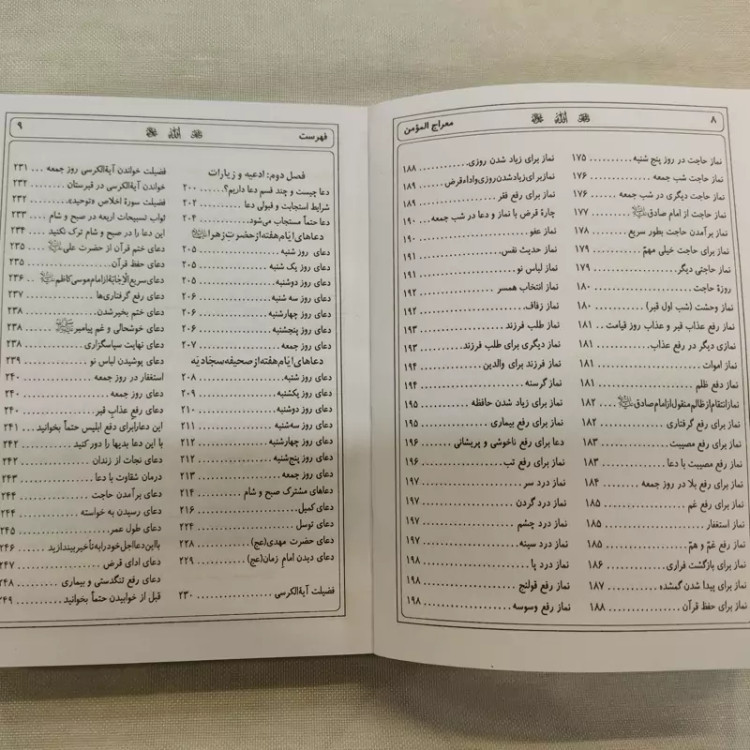 ۸
معراج المؤمن
نماز حاجت در روز پنج شنبه ........... ۱۷۵
نماز حاجت شب جمعه ........... ۱۷۶
نماز حاجت دیگری در شب جمعه ........... ۱۷۶
نماز حاجت از امام صادق ........... ۱۷۷
نماز برآمدن حاجت بطور سریع ........... ۱۷۸
نماز برای حاجت خیلی مهمّ ........... ۱۷۹
نماز حاجتی دیگر ........... ۱۷۹
روزهٔ حاجت ........... ۱۸۰
نماز وحشت (شب اول قبر) ........... ۱۸۰
نماز رفع عذاب قبر و عذاب روز قیامت .. ۱۸۱
نمازی دیگر در رفع عذاب ........... ۱۸۱
نماز اموات ........... ۱۸۱
نماز دفع ظلم ........... ۱۸۱
نماز انتقام از ظالم منقول از امام صادق .. ۱۸۲
نماز برای رفع گرفتاری ........... ۱۸۲
نماز برای رفع مصیبت ........... ۱۸۳
نماز رفع مصیبت با دعا ........... ۱۸۳
نماز برای رفع بلا در روز جمعه ........... ۱۸۴
نماز برای رفع غم ........... ۱۸۵
نماز استغفار ........... ۱۸۵
نماز رفع غمّ و همّ ........... ۱۸۵
نماز برای بازگشت فراری ........... ۱۸۶
نماز برای پیدا شدن گمشده ........... ۱۸۷
نماز برای حفظ قرآن ........... ۱۸۸
نماز برای زیاد شدن روزی ........... ۱۸۸
نماز برای زیاد شدن روزی و اداء قرض .. ۱۸۹
نماز برای رفع فقر ........... ۱۸۹
چارهٔ قرض با نماز و دعا در شب جمعه ... ۱۹۰
نماز عفو ........... ۱۹۰
نماز حدیث نفس ........... ۱۹۱
نماز لباس نو ........... ۱۹۱
نماز انتخاب همسر ........... ۱۹۲
نماز زفاف ........... ۱۹۲
نماز طلب فرزند ........... ۱۹۳
نماز دیگری برای طلب فرزند ........... ۱۹۳
نماز فرزند برای والدین ........... ۱۹۴
نماز گرسنه ........... ۱۹۴
نماز برای زیاد شدن حافظه ........... ۱۹۵
نماز برای رفع بیماری ........... ۱۹۵
دعا برای رفع ناخوشی و پریشانی ........... ۱۹۶
نماز برای رفع تب ........... ۱۹۶
نماز درد سر ........... ۱۹۷
نماز درد گردن ........... ۱۹۷
نماز درد چشم ........... ۱۹۷
نماز درد سینه ........... ۱۹۷
نماز درد پا ........... ۱۹۸
نماز رفع قولنج ........... ۱۹۸
نماز رفع وسوسه ........... ۱۹۸
فهرست
۹
فصل دوم: ادعیه و زیارات
دعا چیست و چند قسم دعا داریم؟ ........... ۲۰۰
شرایط استجابت و قبولی دعا ........... ۲۰۲
دعا حتماً مستجاب می‌شود ........... ۲۰۴
دعاهای ایّام هفته از حضرت زهرا
دعای روز شنبه ........... ۲۰۵
دعای روز یک شنبه ........... ۲۰۵
دعای روز دوشنبه ........... ۲۰۵
دعای روز سه شنبه ........... ۲۰۶
دعای روز چهارشنبه ........... ۲۰۶
دعای روز پنجشنبه ........... ۲۰۶
دعای روز جمعه ........... ۲۰۷
دعاهای ایّام هفته از صحیفه سجادیّه
دعای روز شنبه ........... ۲۰۸
دعای روز یکشنبه ........... ۲۰۹
دعای روز دوشنبه ........... ۲۱۰
دعای روز سه‌شنبه ........... ۲۱۱
دعای روز چهارشنبه ........... ۲۱۲
دعای روز پنج‌شنبه ........... ۲۱۲
دعای روز جمعه ........... ۲۱۳
دعاهای مشترک صبح و شام ........... ۲۱۴
دعای کمیل ........... ۲۱۶
دعای توسل ........... ۲۲۴
دعای حضرت مهدی(عج) ........... ۲۲۸
دعای دیدن امام زمان(عج) ........... ۲۲۹
فضیلت آیةالکرسی ........... ۲۳۰
فضیلت خواندن آیةالکرسی روز جمعه ... ۲۳۱
خواندن آیةالکرسی در قبرستان ........... ۲۳۲
فضیلت سورهٔ اخلاص «توحید» ........... ۲۳۲
ثواب تسبیحات اربعه در صبح و شام .... ۲۳۳
این دعا را در صبح و شام ترک نکنید .... ۲۳۴
دعای ختم قرآن از حضرت علی ... ۲۳۵
دعای حفظ قرآن ........... ۲۳۵
دعای سریع الاجابة از امام موسی کاظم .. ۲۳۶
دعای رفع گرفتاری‌ها ........... ۲۳۷
دعای ختم بخیر شدن ........... ۲۳۸
دعای خوشحالی و غم پیامبر ... ۲۳۸
دعای نهایت سپاسگزاری ........... ۲۳۸
دعای پوشیدن لباس نو ........... ۲۳۹
استغفار در روز جمعه ........... ۲۴۰
دعای روز جمعه ........... ۲۴۰
دعای رفع عذاب قبر ........... ۲۴۰
این دعا را برای دفع ابلیس حتماً بخوانید .. ۲۴۱
با این دعا بدیها را دور کنید ........... ۲۴۲
دعای نجات از زندان ........... ۲۴۲
درمان شقاوت با دعا ........... ۲۴۳
دعای برآمدن حاجت ........... ۲۴۴
دعای رسیدن به خواسته ........... ۲۴۴
دعای طول عمر ........... ۲۴۵
با این دعا اجل خود را به تأخیر بیندازید ... ۲۴۶
دعای ادای قرض ........... ۲۴۷
دعای رفع تنگدستی و بیماری ........... ۲۴۸
قبل از خوابیدن حتماً بخوانید ........... ۲۴۹